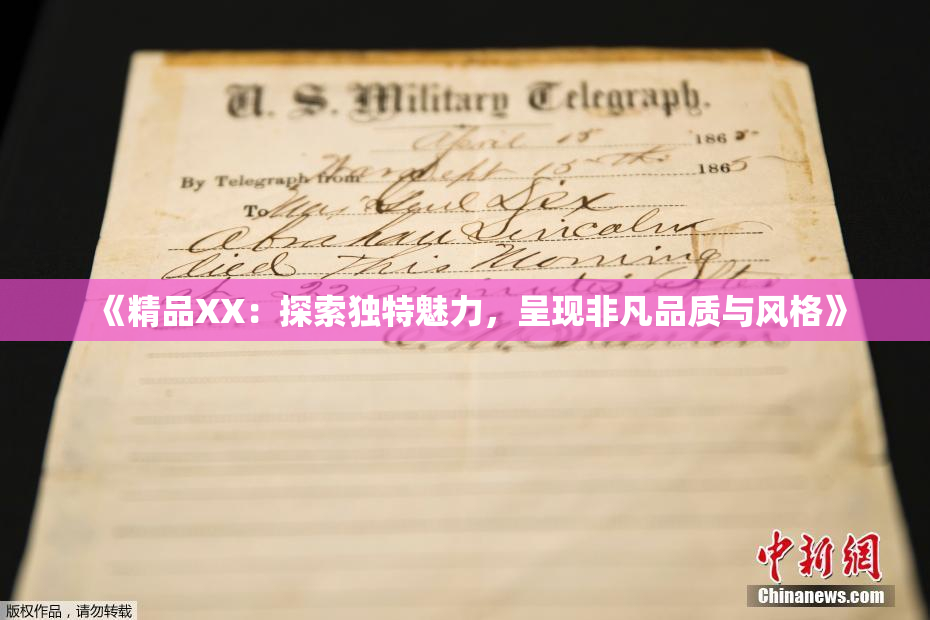 U. S. Military Telegraph.
April 15 1865
By Telegraph from War Dept 15th 1865
To Maj Genl Dix
Abraham Lincoln
died This Morning
at 22 minutes after
《精品XX：探索独特魅力，呈现非凡品质与风格》
E. M. Stanton
中新网
Chinanews.com
版权作品，请勿转载